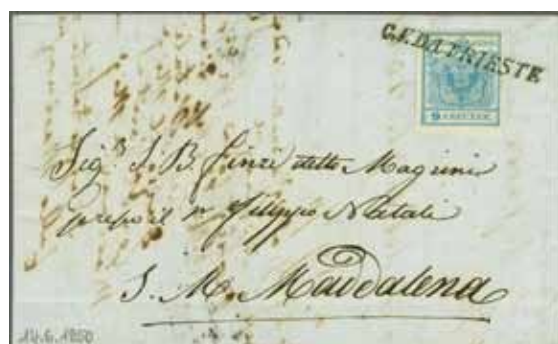 C.F.DA TRIESTE
9 KREUZER
Sig.r I. B. Finzi detto Magrini
presso il Sr Filippo Natali
S. M. Maddalena
14.6.1850